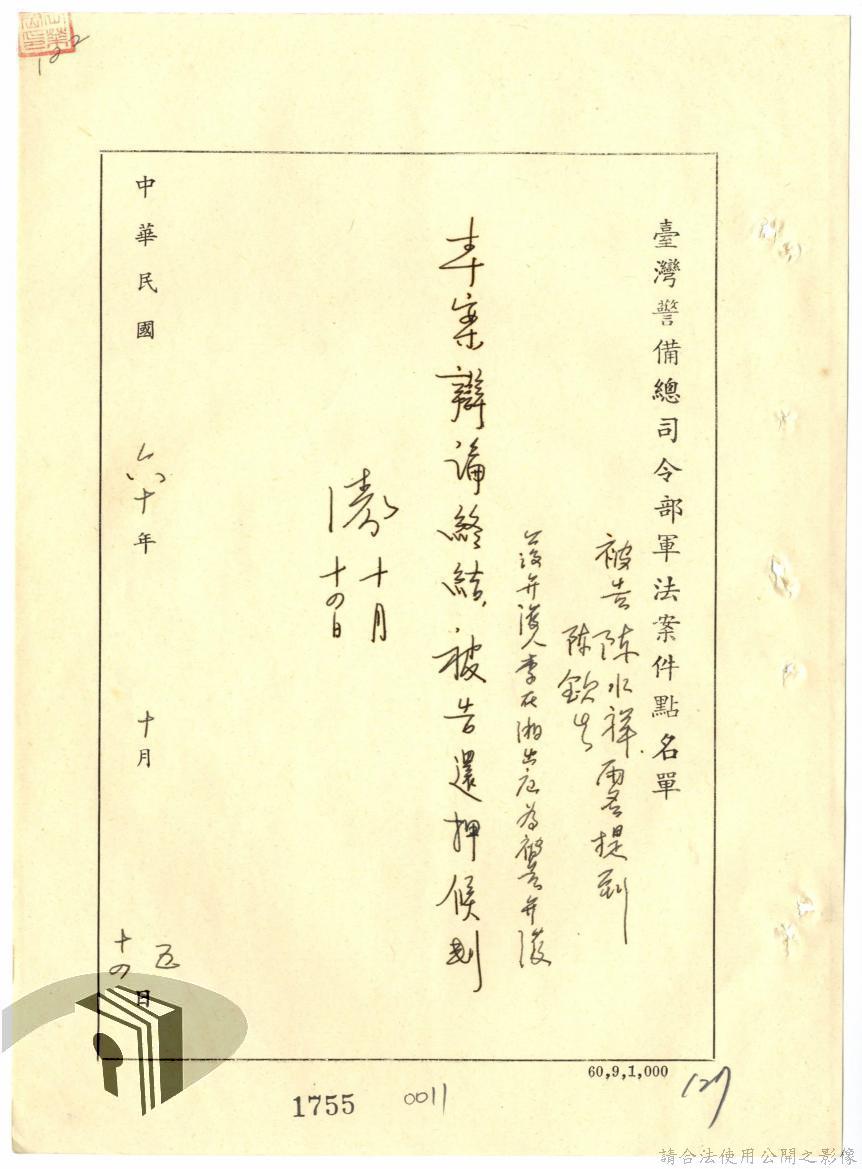 臺灣警備總司令部軍法案件點名單
被告陳水祥兩名提到
陳欽生
公設弁護人李在湘出庭為被告弁護
本案辯論終結，被告還押候判
十月
十四日
中華民國 六十年 十月 十四日
五
122
60,9,1,000
127
1755
0011
請合法使用公開之影像